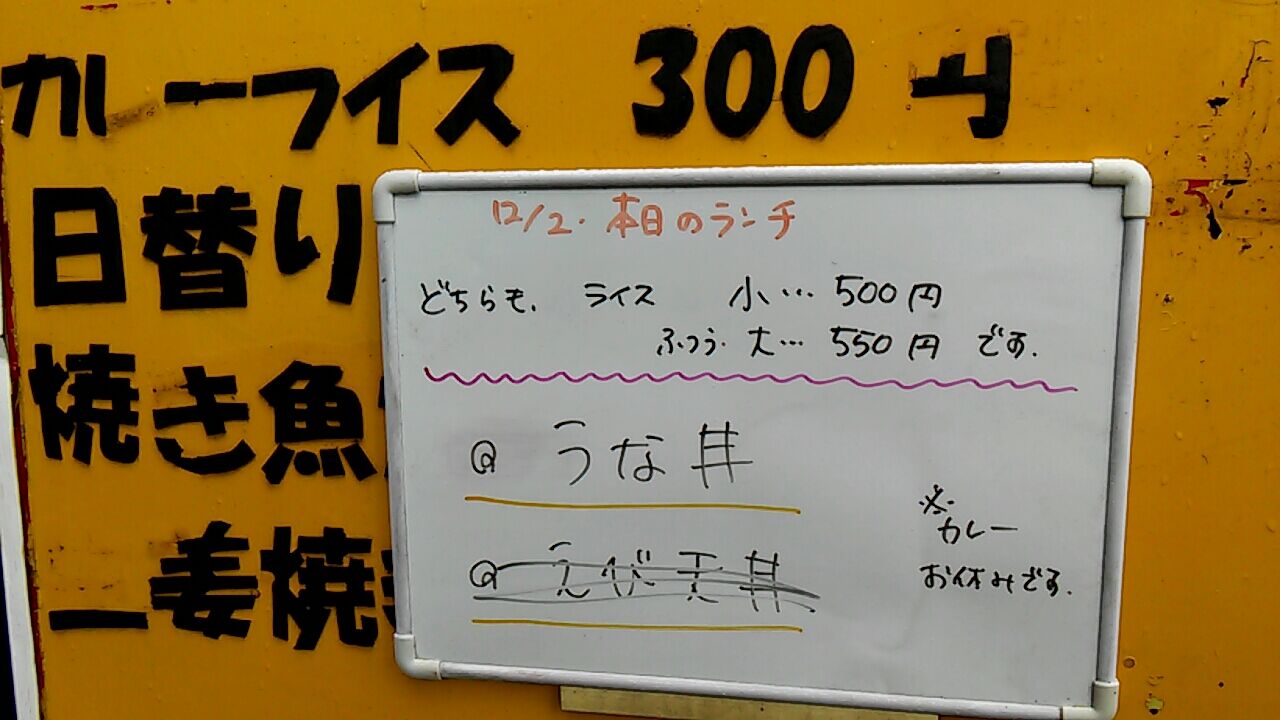 カレーライス 300円
日替り
焼き魚
姜焼
12/2. 本日のランチ
どちらも、 ライス 小… 500円
ふつう. 大… 550円 です.
@ うな丼
@ えび天丼
※ カレー
お休みです.